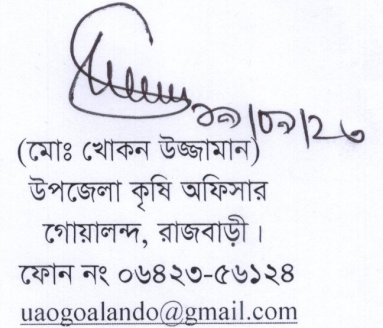 ২৯/০৯/২৩
(মোঃ খোকন উজ্জামান)
উপজেলা কৃষি অফিসার
গোয়ালন্দ, রাজবাড়ী ।
ফোন নং ০৬৪২৩-৫৬১২৪
uaogoalando@gmail.com